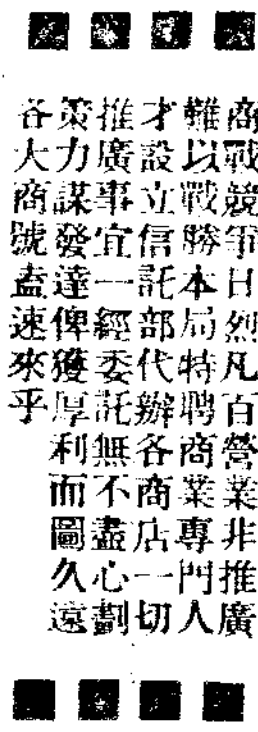 商戰競爭日烈凡百營業非推廣
難以戰勝本局特聘商業專門人
才設立信託部代辦各商店一切
推廣事宜一經委託無不盡心劃
策力謀發達俾獲厚利而圖久遠
各大商號盍速來乎